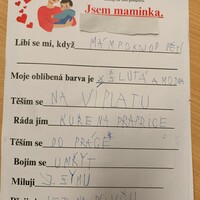 Jsem maminka.
Líbí se mi, když MÁM POKOJ OD DĚTÍ
Moje oblíbená barva je ŽLUTÁ A MODRÁ
Těším se NA VÍPLATU
Ráda jím KUŘE NA PAPRICE
Těším se PO PRÁCE
Bojím se UMŘÝT
Miluji